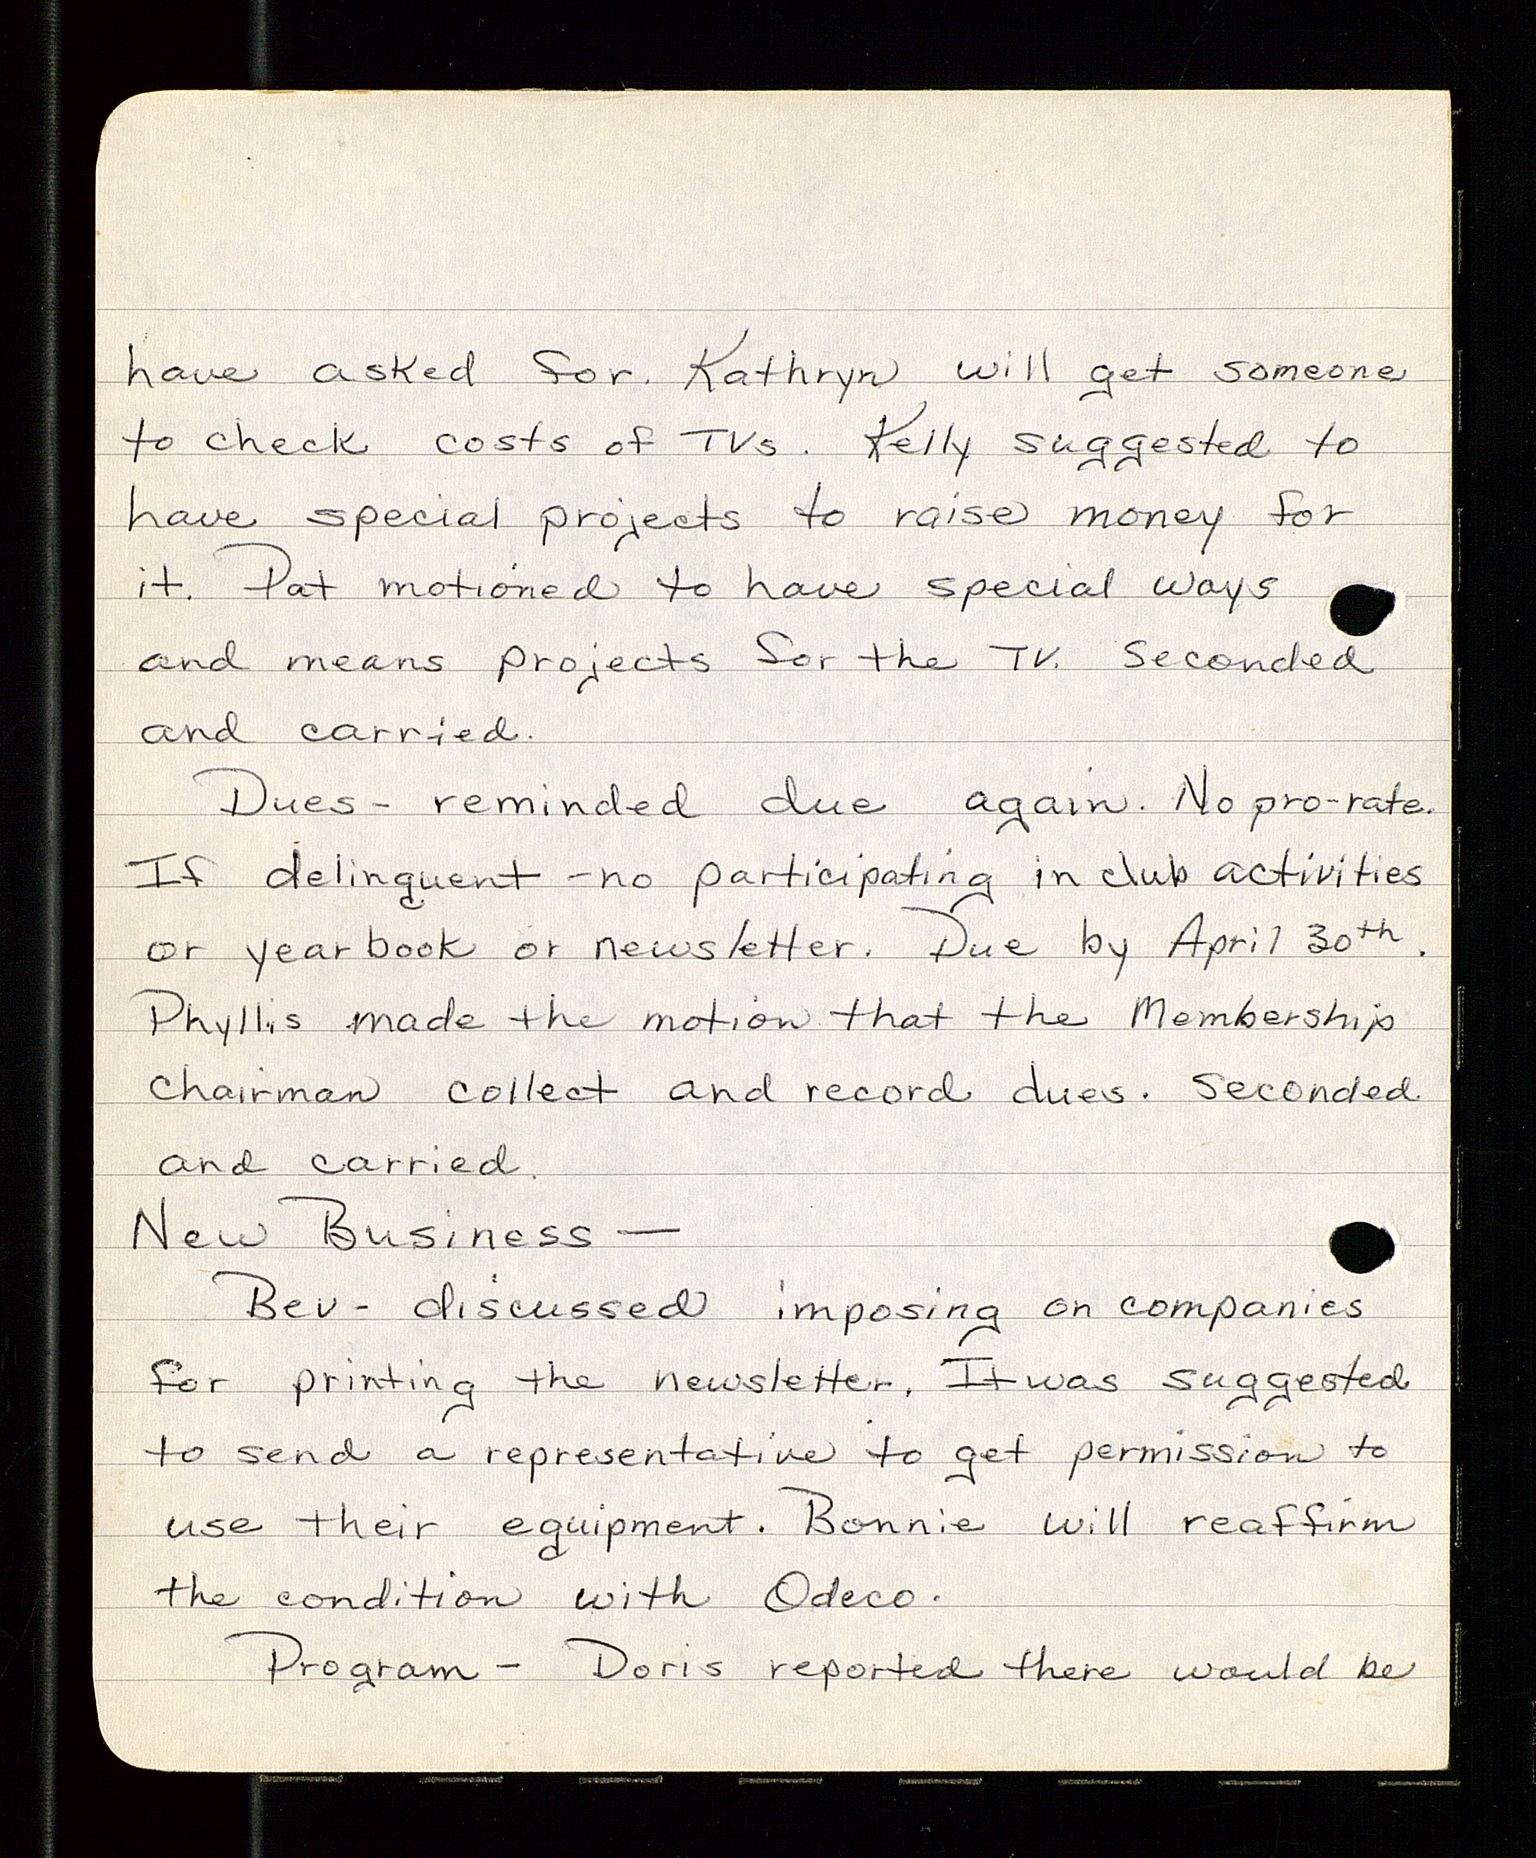 have asked for. Kathryn will get someone
to check costs of TVs. Kelly suggested to
have special projects to raise money for
it. Pat motioned to have special ways
and means projects for the TV. Seconded
and carried.
Dues - reminded due again. No pro-rate.
If delinquent - no participating in club activities
or yearbook or newsletter. Due by April 30th.
Phyllis made the motion that the Membership
chairman collect and record dues. Seconded
and carried.
New Business —
Bev - discussed imposing on companies
for printing the newsletter. It was suggested
to send a representative to get permission to
use their equipment. Bonnie will reaffirm
the condition with Odeco.
Program - Doris reported there would be